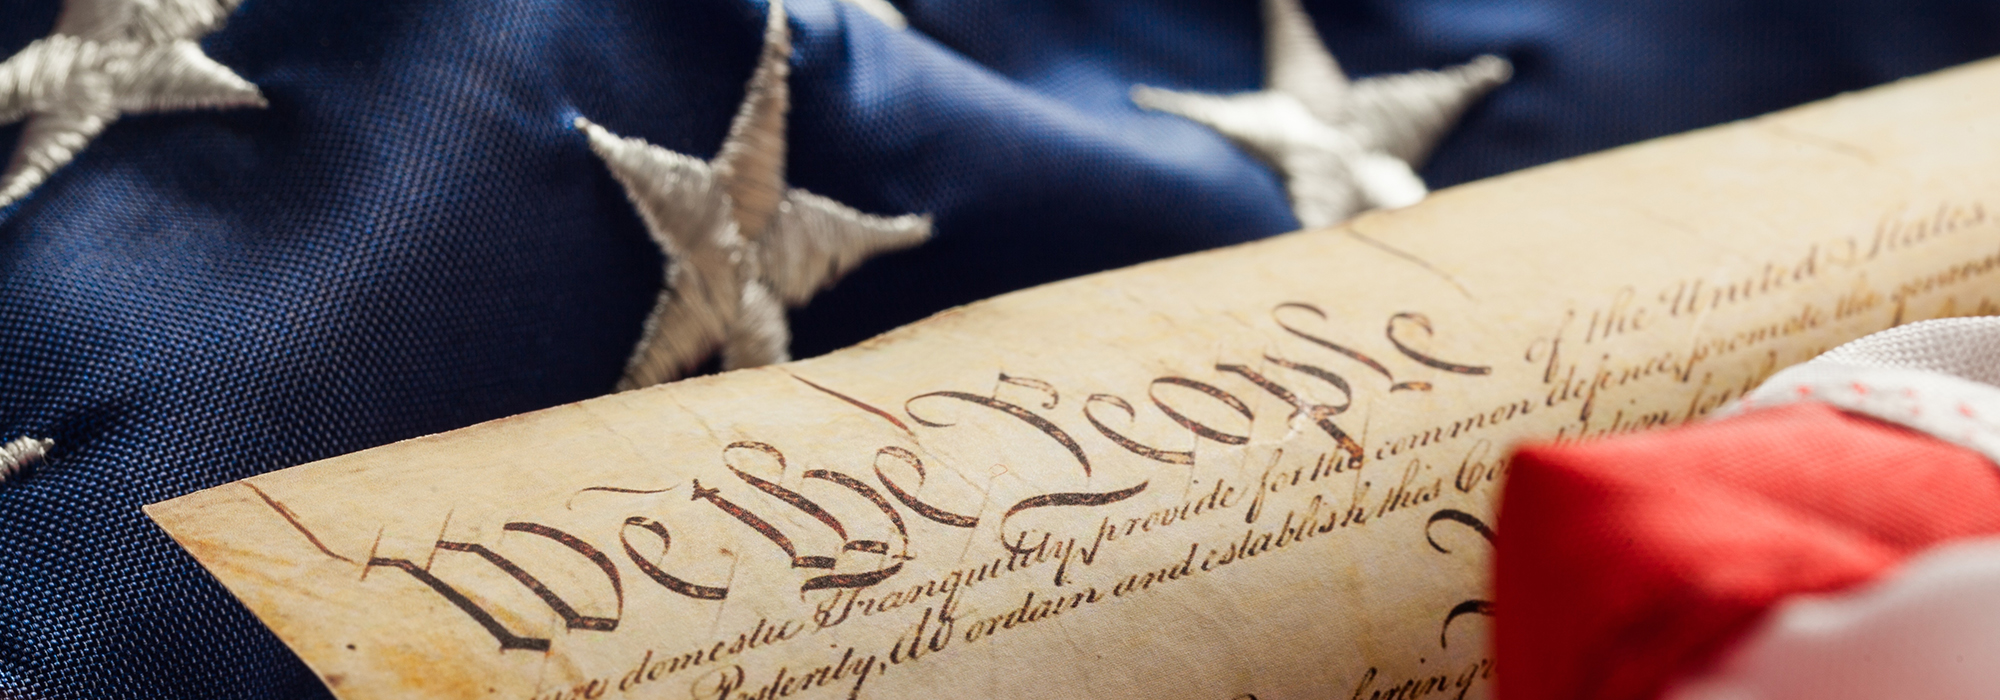 We the People of the United States,
domestic Tranquility, provide for the common defence, promote the general
Posterity, do ordain and establish this